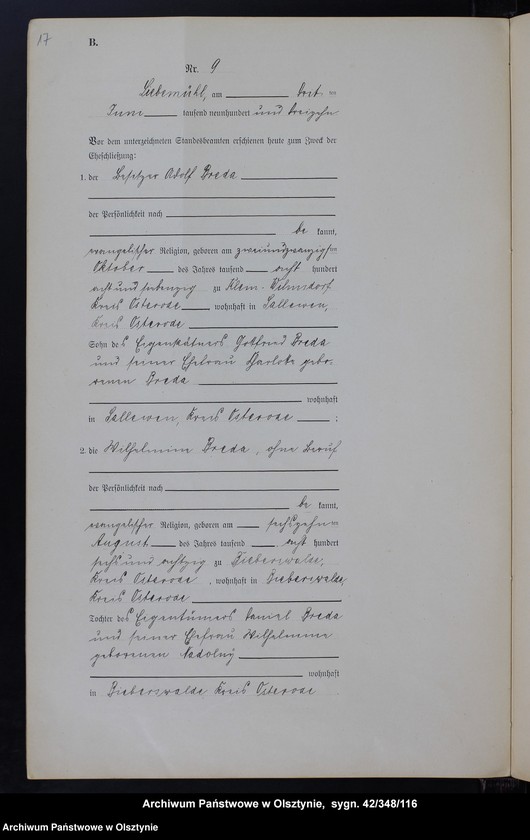 17
B.
Nr. 9
Liebemühl, am
Juni tausend neunhundert und dreizehn
Vor dem unterzeichneten Standesbeamten erschienen heute zum Zweck der
Eheschließung:
1. der Besitzer Adolf Breda
der Persönlichkeit nach
be kannt,
evangelischer Religion, geboren am zweiundzwanzigsten
Oktober des Jahres tausend acht hundert
acht und siebenzig zu Klein-
Kreis Osterode wohnhaft in Sallewen,
Kreis Osterode
Sohn des Eigenkätners Gottfried Breda
und seiner Ehefrau Charlotte gebo-
renen Breda
wohnhaft
in Sallewen, Kreis Osterode ;
2. die Wilhelmine Breda, ohne Beruf
der Persönlichkeit nach
be kannt,
evangelischer Religion, geboren am sechszehnten
August des Jahres tausend acht hundert
sechs und achtzig zu Bieberswalde,
Kreis Osterode, wohnhaft in Bieberswalde,
Kreis Osterode
Tochter des Eigentümers Daniel Breda
und seiner Ehefrau Wilhelmine
geborenen Nadolny
wohnhaft
in Bieberswalde Kreis Osterode
Archiwum Państwowe w Olsztynie, sygn. 42/348/116
Archiwum Państwowe w Olsztynie